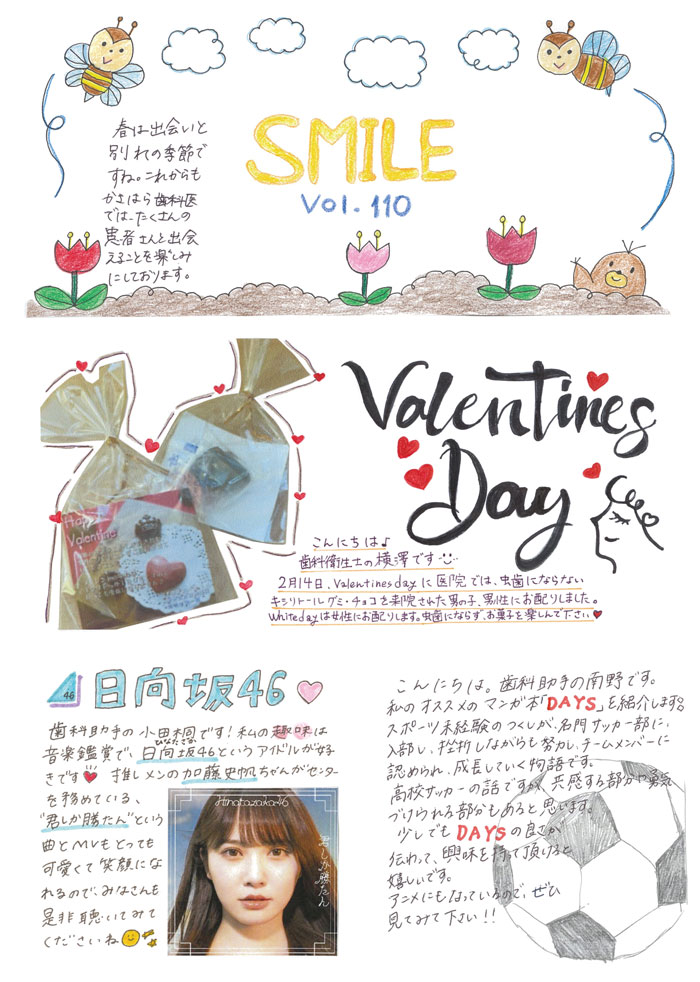 春は出会いと
別れの季節で
すね。これからも
かさはら歯科医
では、たくさんの
患者さんと出会
えることを楽しみ
にしております。
SMILE
Vol.110
Happy
Valentine
Valentines
Day
こんにちは♪
歯科衛生士の横澤です
2月14日、Valentines dayに医院では、虫歯にならない
キシリトールグミ・チョコを来院された男の子、男性にお配りしました。
Whitedayは女性にお配りします。虫歯にならず、お菓子を楽しんで下さい♥
46 日向坂46
歯科助手の小田桐です!私の趣味は
音楽鑑賞で、日向坂46というアイドルが好
ひなたざか
きです♥ 推しメンの加藤史帆ちゃんがセンター
を務めている、
"君しか勝たん"という
曲とMVもとっても
可愛くて笑顔にな
れるので、みなさんも
是非聴いてみて
くださいね
Hinatazaka46
君しか勝たん
こんにちは。歯科助手の南野です。
私のオススメのマンガ本「DAYS」を紹介します。
スポーツ未経験のつくしが、名門サッカー部に、
入部し、挫折しながらも努力し、チームメンバーに
認められ、成長していく物語です。
高校サッカーの話ですが、共感する部分や勇気
づけられる部分もあると思います。
少しでもDAYSの良さが
伝わって、興味を持って頂けると
嬉しいです。
アニメにもなっているので、ぜひ
見てみて下さい!!